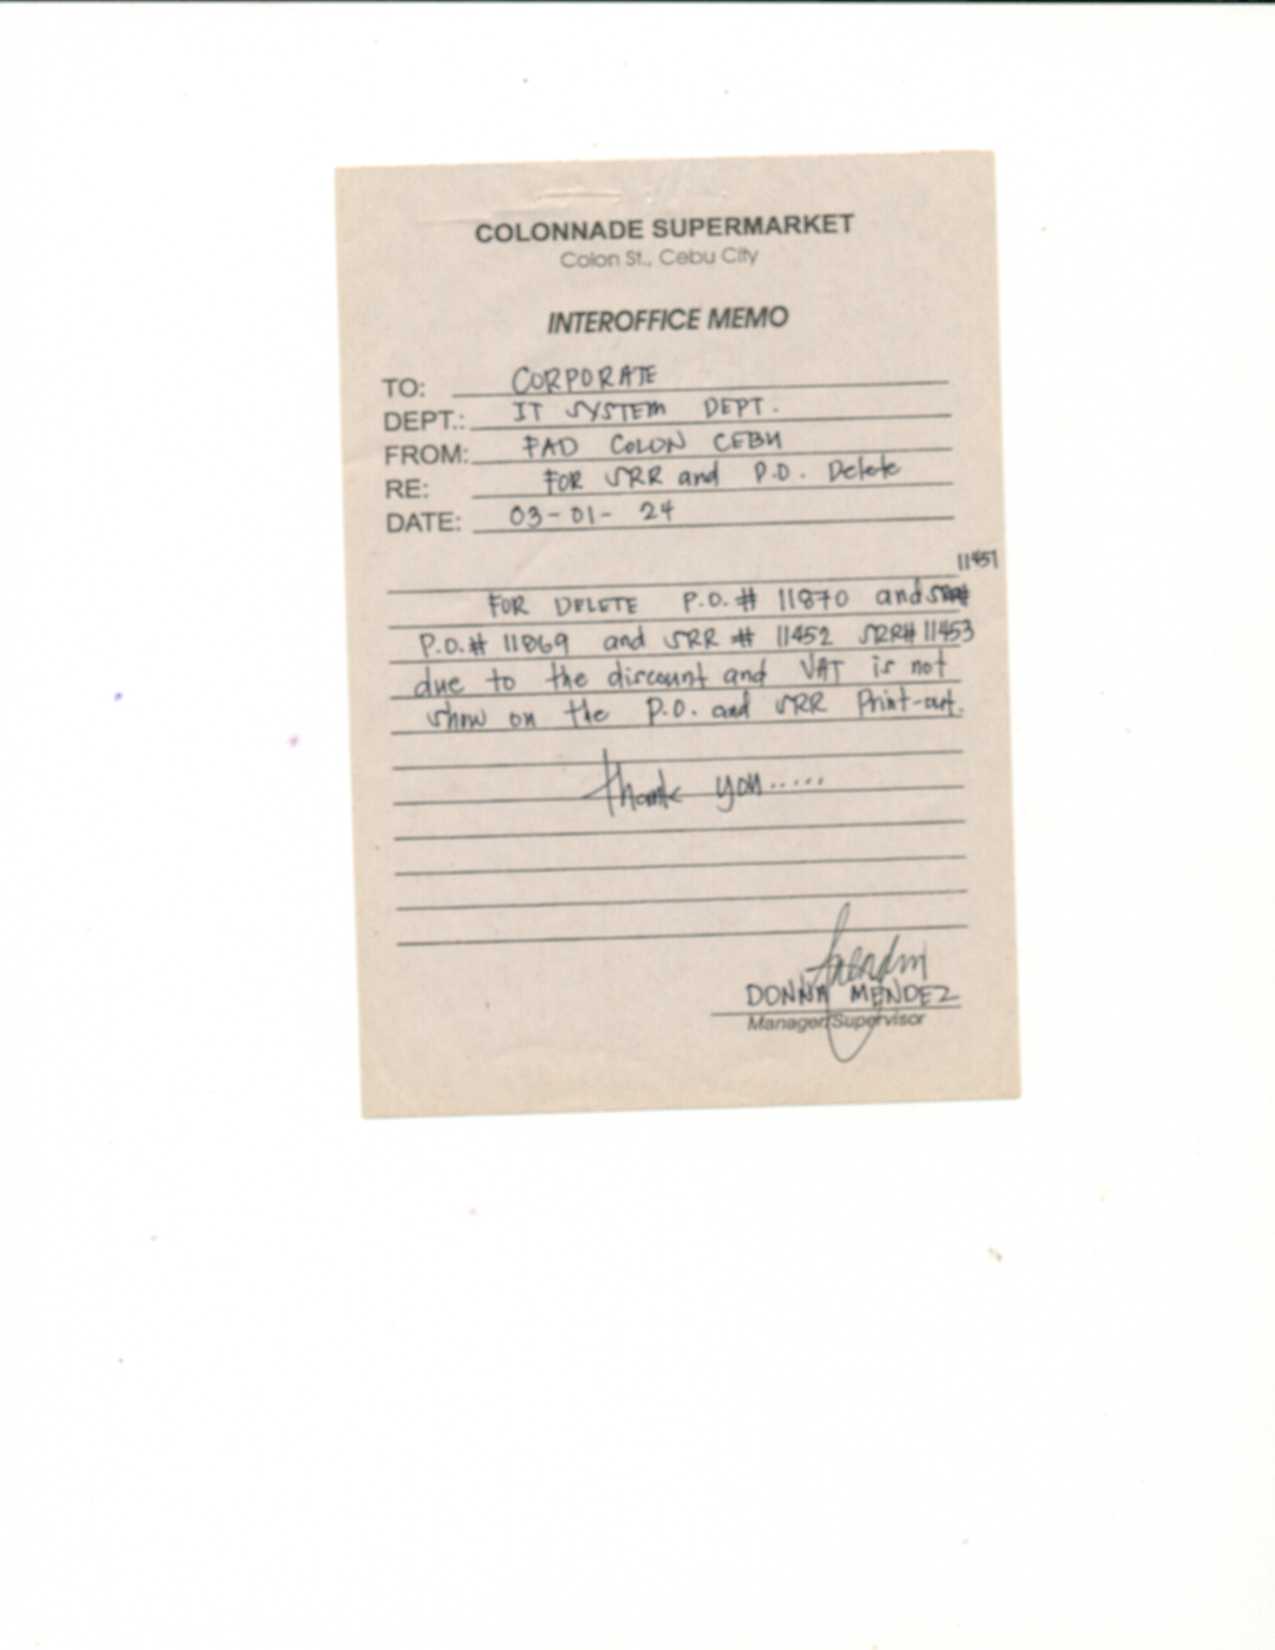 COLONNADE SUPERMARKET
Colon St., Cebu City
INTEROFFICE MEMO
TO: CORPORATE
DEPT.: IT SYSTEM DEPT.
FROM: PAD COLON CEBU
RE: FOR SRR and P.O. Delete
DATE: 03-01-24
11451
FOR DELETE P.O.# 11870 and SRR#
P.O.# 11869 and SRR # 11452 SRR# 11453
due to the discount and VAT is not
show on the P.O. and SRR Print-out.
Thank you.....
DONNA MENDEZ
Manager/Supervisor